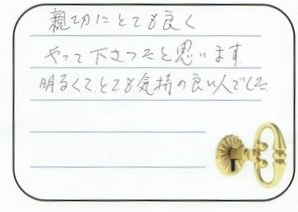 親切にとても良く
やって下さったと思います
明るくてとても気持の良い人でした